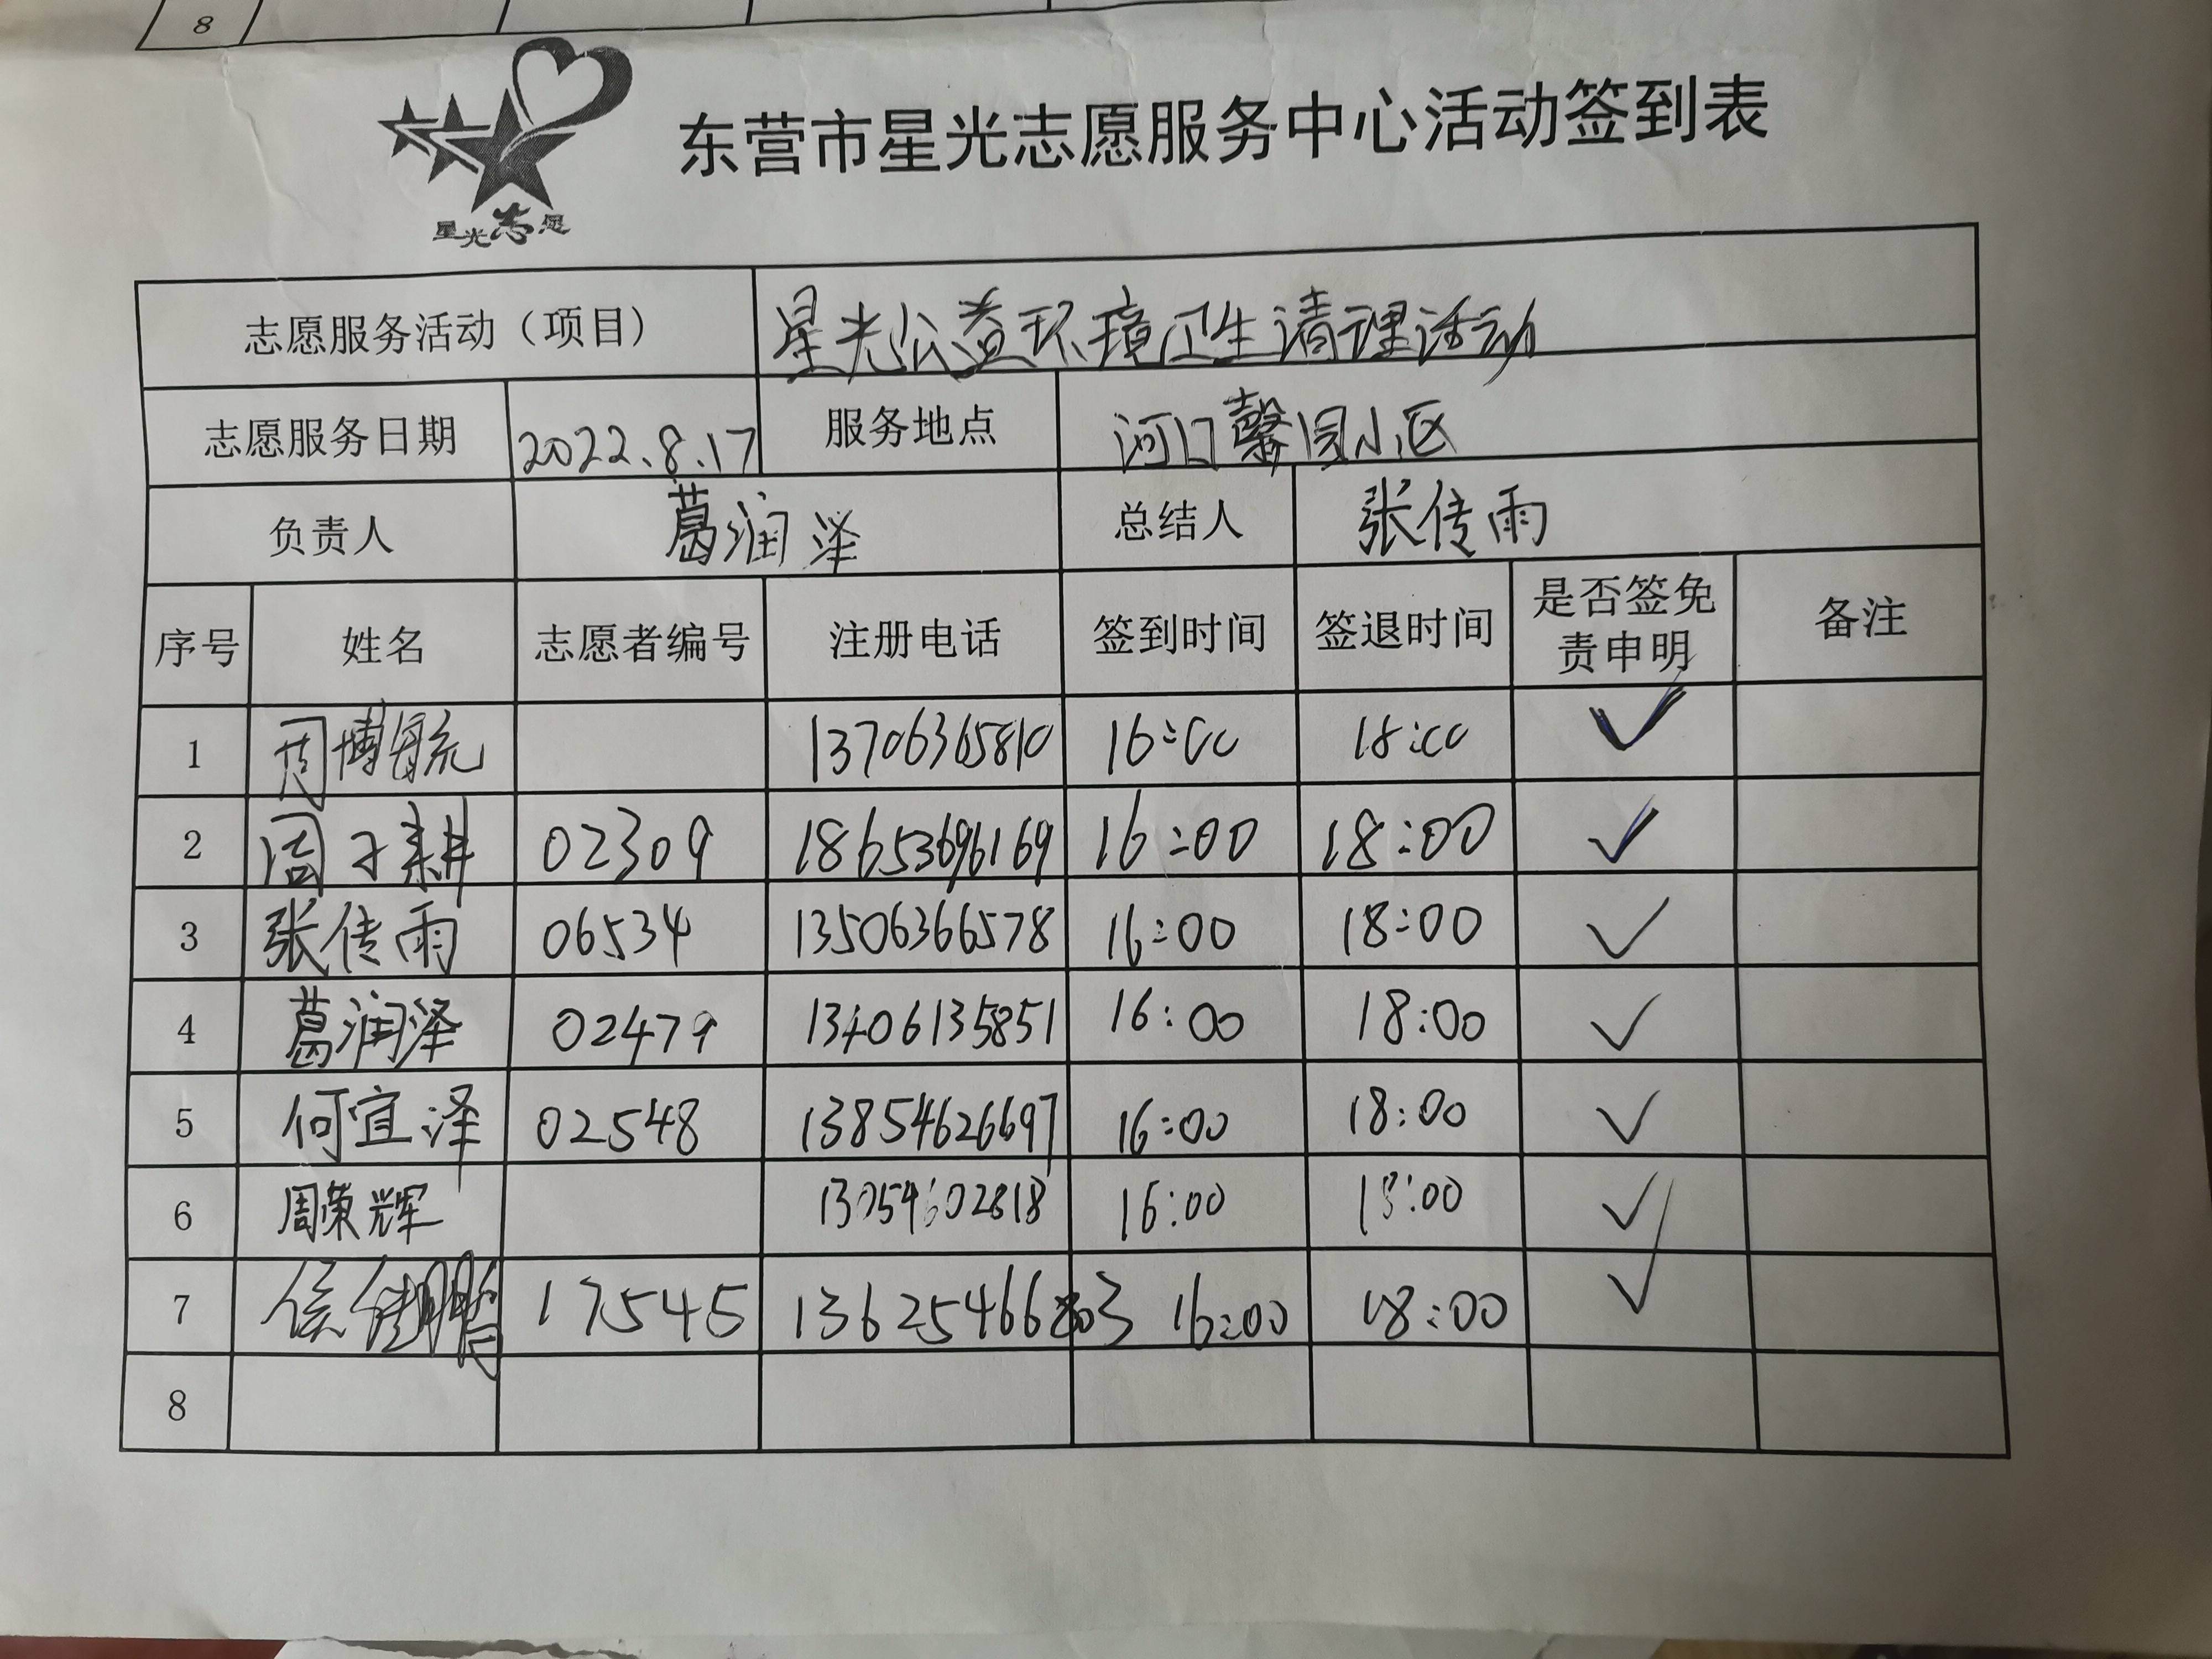 8
星光志愿
东营市星光志愿服务中心活动签到表
志愿服务活动（项目） 星光公益环境卫生清理活动
志愿服务日期 2022.8.17 服务地点 河口馨园小区
负责人 葛润泽 总结人 张传雨
序号 姓名 志愿者编号 注册电话 签到时间 签退时间 是否签免责申明 备注
1 周博毓 13706365810 16:00 18:00 ✓
2 周子耕 02309 18653696169 16:00 18:00 ✓
3 张传雨 06534 13506366578 16:00 18:00 ✓
4 葛润泽 02479 13406135851 16:00 18:00 ✓
5 何宜泽 02548 13854626697 16:00 18:00 ✓
6 周荣辉 13054602818 16:00 18:00 ✓
7 17545 16:00 18:00 ✓
8